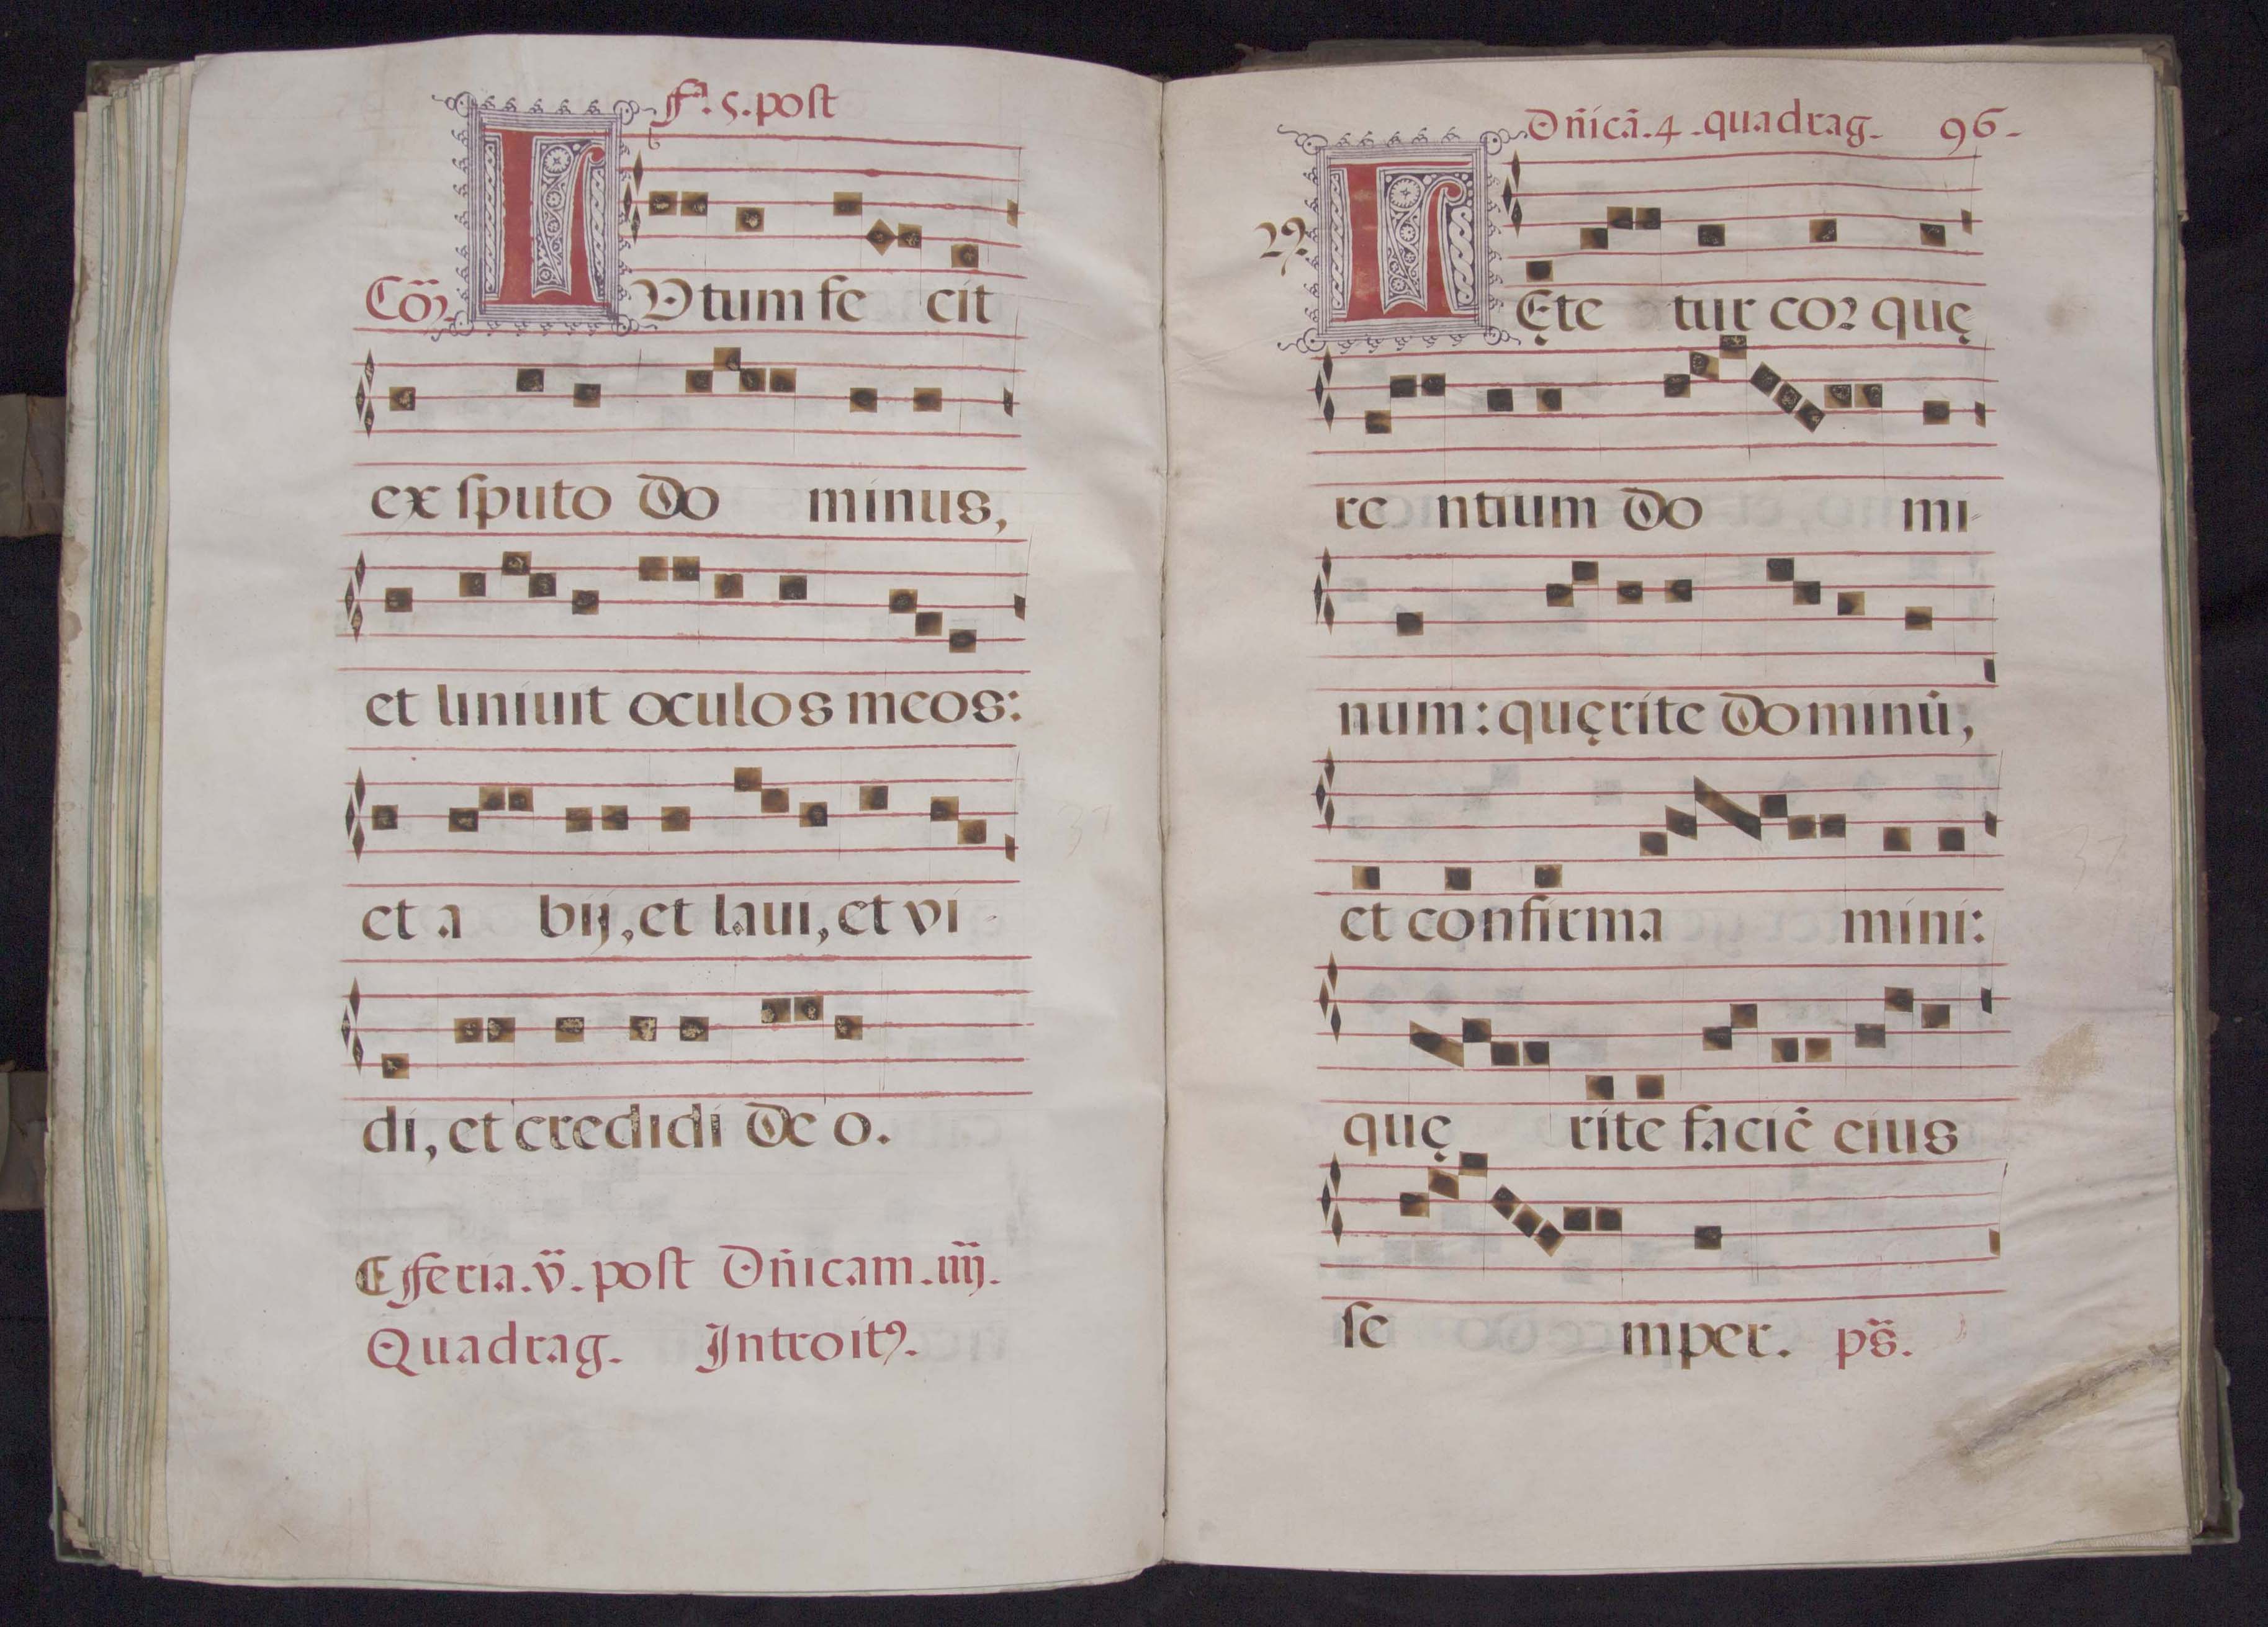 Fᵃ. 5. post
Cōı̈o. LVtum fe cit
ex ſputo do minus,
et liniuit oculos meos:
et a bij, et laui, et vi-
di, et credidi de o.
feria. v̈. post Dñicam. iiij.
Quadrag. Introitꝰ.
Dñicā. 4. quadrag. 96.
LĘte tur coꝛ quę
re ntium do mi-
num: quęrite dominū,
et confirma mini:
quę rite faciē eius
ſe mper. ps̈.